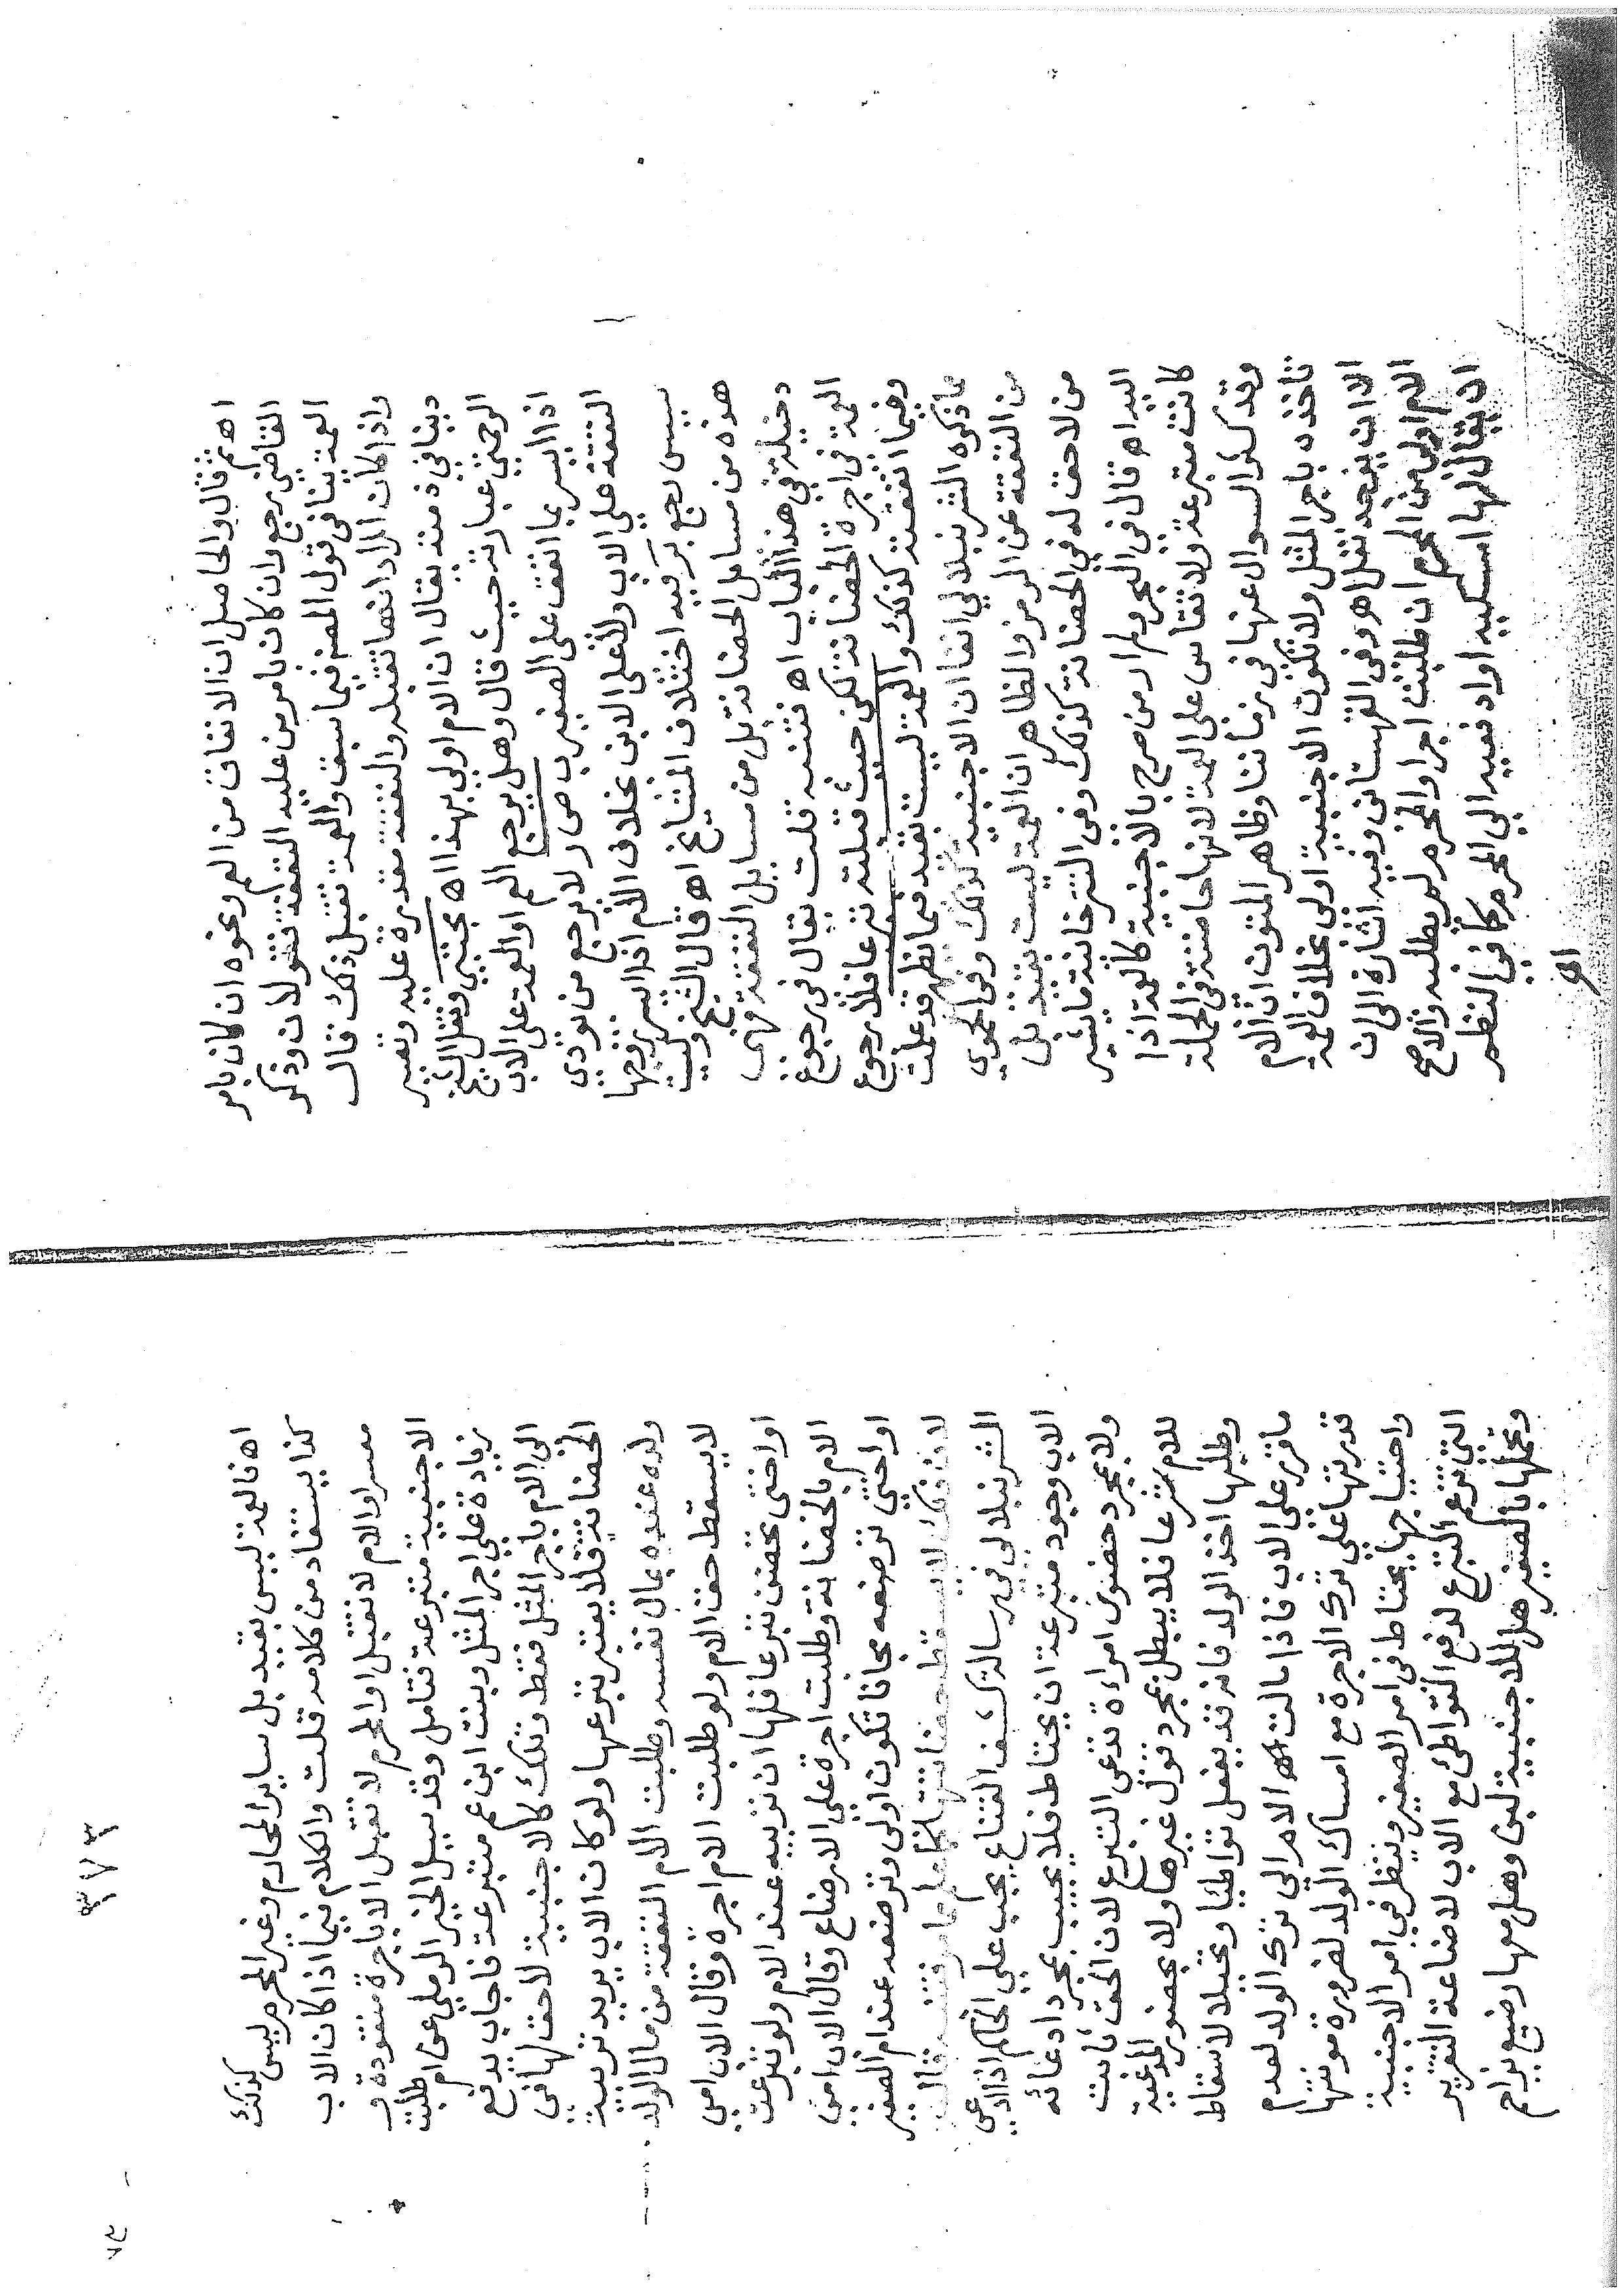 اه ثم قال والحاصل ان الانفاق من العم ونحوه ان كان بامر
القاضي رجع وان كان بامر من عليه النفقة فتقولان وذكر
العمة ينافى قول المص فيما سبق والعمة تقبل ذلك قال
واذا كان المراد انها تقبله والنفقة مقدرة عليه وتصير
دينا في ذمته يقال ان الام اولي بهذا اه مجتبي فنقل الشيخ
الرحمتي عبارته حيث قال وهل يرجع العم او العمة على الاب
اذا ايسر بما انفق على الصغير ب ص ر لا يرجع من تؤدي
النفقة علي الاب ولا على الابن بخلاف الام اذا ايسر زوجها
بيس رجع بر فيه اختلاف المشايخ اه قال الشيخ وليست
هذه من مسايل الحضانة بل من مسايل النفقة فهى
دخيلة في هذا الباب اه فتنبه قلت يقال فى رجوع
العمة فى اجرة الحضانة لكن حيث قبلته تبرعا فلا رجوع
وفيما انفقته كذلك والعمة ليست بقيد مما يظهر قد علمت
ما ذكره الشرنبلالي انفا ان الاجنبية كذلك وفى الحموي
من النفقة عن الرمز والظاهر ان العمة ليست بقيد بل
من لاحق له في الحضانة كذلك وفى التترخانية ما يشير
اليه اه قال فى البحر ولم ار من صرح بالاجنبية كالعمة اذا
كانت متبرعة ولا تقاس على العمة لانها حاضنة فى الجملة
وقد كثر السوال عنها فى زماننا وظاهر المتون ان الام
تأخذه باجر المثل ولا تكون الاجنبية اولى بخلاف العمة
الا ان يوجد نقل اه وفى القهستانى وفيه اشارة الى ان
الام اولى من المحرم ان طلبت اجرا والمحرم لم يطلبه والاصح
ان يقال لها امسكيه او ادفعيه الي المحرم كما في النظم
اه
٢٧٣
اه فالعمة ليس بقيد بل ساير المحارم وغير المحرم ليس كذلك
كذا يستفاد من كلامه قلت والكلام فيما اذا كان الاب
معسرا والام لا تقبل او المحرم لا تقبل الا باجرة منقودة و
الاجنبية متبرعة فتامل وقد سيل الخير الرملي عن ام طلبت
زيادة علي اجر المثل وبنت ابن عم متبرعة فاجاب بدفع
الى الام باجر المثل فقط وتلك كالاجنبية لاحق لها في
الحضانة فلا يعتبر تبرعها ولو كان الاب يريد تربية
ولده عنده بمال نفسه وطلبت الام النفقة من مال الولد
لا يسقط حق الام ولو طلبت الام اجرة وقال الاب امي
او اختي تحضن تبرعا فلها ان تربيه عند الام ولو تبرعت
الام بالحضانة وطلبت اجرة علي الارضاع وقال الاب امي
او اختي ترضعه مجانا تكون اولى وترضعه عند ام الصغير
لان ذلك لا يسقط حضانتها فتنبه وقال
الشرنبلالي في رسالته كشف القناع يجب علي الحاكم اذا ادعى
الاب وجود متبرعة ان يحتاط فلا يجيب بمجرد ادعائه
ولا بمجرد حضور امراءة تدعى التبرع لان الحق ثابت
للام شرعا فلا يبطل بمجرد قول غيرها ولا بحضور المدعية
وطلبها اخذ الولد فانه قد يفعل تواطئا وتحيلا لاسقاط
ما قرر على الاب فاذا مالت الام الى ترك الولد لعدم
قدرتها علي ترك الاجرة مع امساك الولد لضرورة مونتها
واحتياجها يحتاط فى امر الصغير وينظر في امر الاجنبية
التي تزعم التبرع لدفع التواطئ مع الاب لاضاعة التقرير
وتحيلها بالصغير هل للاجنبية لبن وهل معها رضيع يزاحم